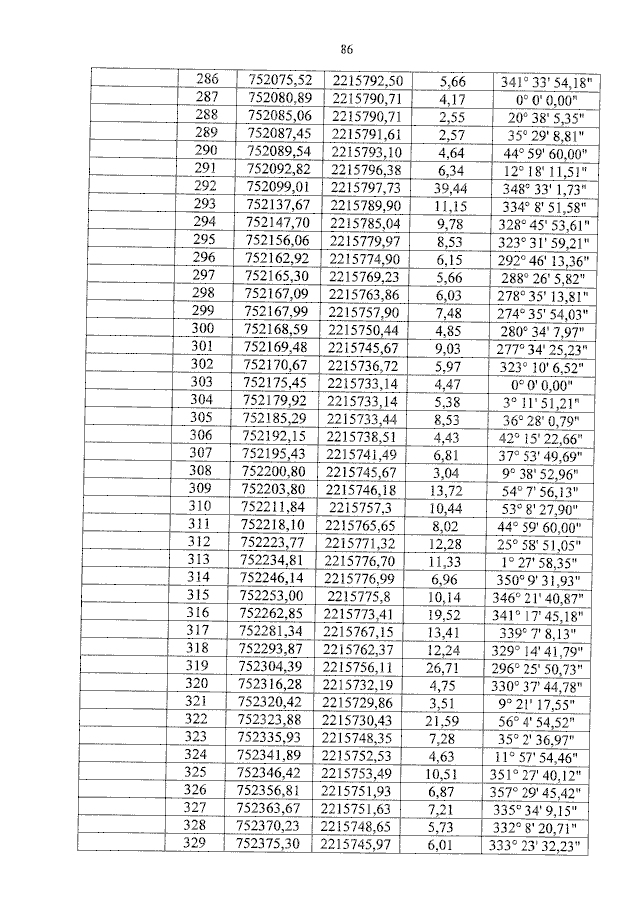 86
286 752075,52 2215792,50 5,66 341° 33' 54,18"
287 752080,89 2215790,71 4,17 0° 0' 0,00"
288 752085,06 2215790,71 2,55 20° 38' 5,35"
289 752087,45 2215791,61 2,57 35° 29' 8,81"
290 752089,54 2215793,10 4,64 44° 59' 60,00"
291 752092,82 2215796,38 6,34 12° 18' 11,51"
292 752099,01 2215797,73 39,44 348° 33' 1,73"
293 752137,67 2215789,90 11,15 334° 8' 51,58"
294 752147,70 2215785,04 9,78 328° 45' 53,61"
295 752156,06 2215779,97 8,53 323° 31' 59,21"
296 752162,92 2215774,90 6,15 292° 46' 13,36"
297 752165,30 2215769,23 5,66 288° 26' 5,82"
298 752167,09 2215763,86 6,03 278° 35' 13,81"
299 752167,99 2215757,90 7,48 274° 35' 54,03"
300 752168,59 2215750,44 4,85 280° 34' 7,97"
301 752169,48 2215745,67 9,03 277° 34' 25,23"
302 752170,67 2215736,72 5,97 323° 10' 6,52"
303 752175,45 2215733,14 4,47 0° 0' 0,00"
304 752179,92 2215733,14 5,38 3° 11' 51,21"
305 752185,29 2215733,44 8,53 36° 28' 0,79"
306 752192,15 2215738,51 4,43 42° 15' 22,66"
307 752195,43 2215741,49 6,81 37° 53' 49,69"
308 752200,80 2215745,67 3,04 9° 38' 52,96"
309 752203,80 2215746,18 13,72 54° 7' 56,13"
310 752211,84 2215757,3 10,44 53° 8' 27,90"
311 752218,10 2215765,65 8,02 44° 59' 60,00"
312 752223,77 2215771,32 12,28 25° 58' 51,05"
313 752234,81 2215776,70 11,33 1° 27' 58,35"
314 752246,14 2215776,99 6,96 350° 9' 31,93"
315 752253,00 2215775,8 10,14 346° 21' 40,87"
316 752262,85 2215773,41 19,52 341° 17' 45,18"
317 752281,34 2215767,15 13,41 339° 7' 8,13"
318 752293,87 2215762,37 12,24 329° 14' 41,79"
319 752304,39 2215756,11 26,71 296° 25' 50,73"
320 752316,28 2215732,19 4,75 330° 37' 44,78"
321 752320,42 2215729,86 3,51 9° 21' 17,55"
322 752323,88 2215730,43 21,59 56° 4' 54,52"
323 752335,93 2215748,35 7,28 35° 2' 36,97"
324 752341,89 2215752,53 4,63 11° 57' 54,46"
325 752346,42 2215753,49 10,51 351° 27' 40,12"
326 752356,81 2215751,93 6,87 357° 29' 45,42"
327 752363,67 2215751,63 7,21 335° 34' 9,15"
328 752370,23 2215748,65 5,73 332° 8' 20,71"
329 752375,30 2215745,97 6,01 333° 23' 32,23"